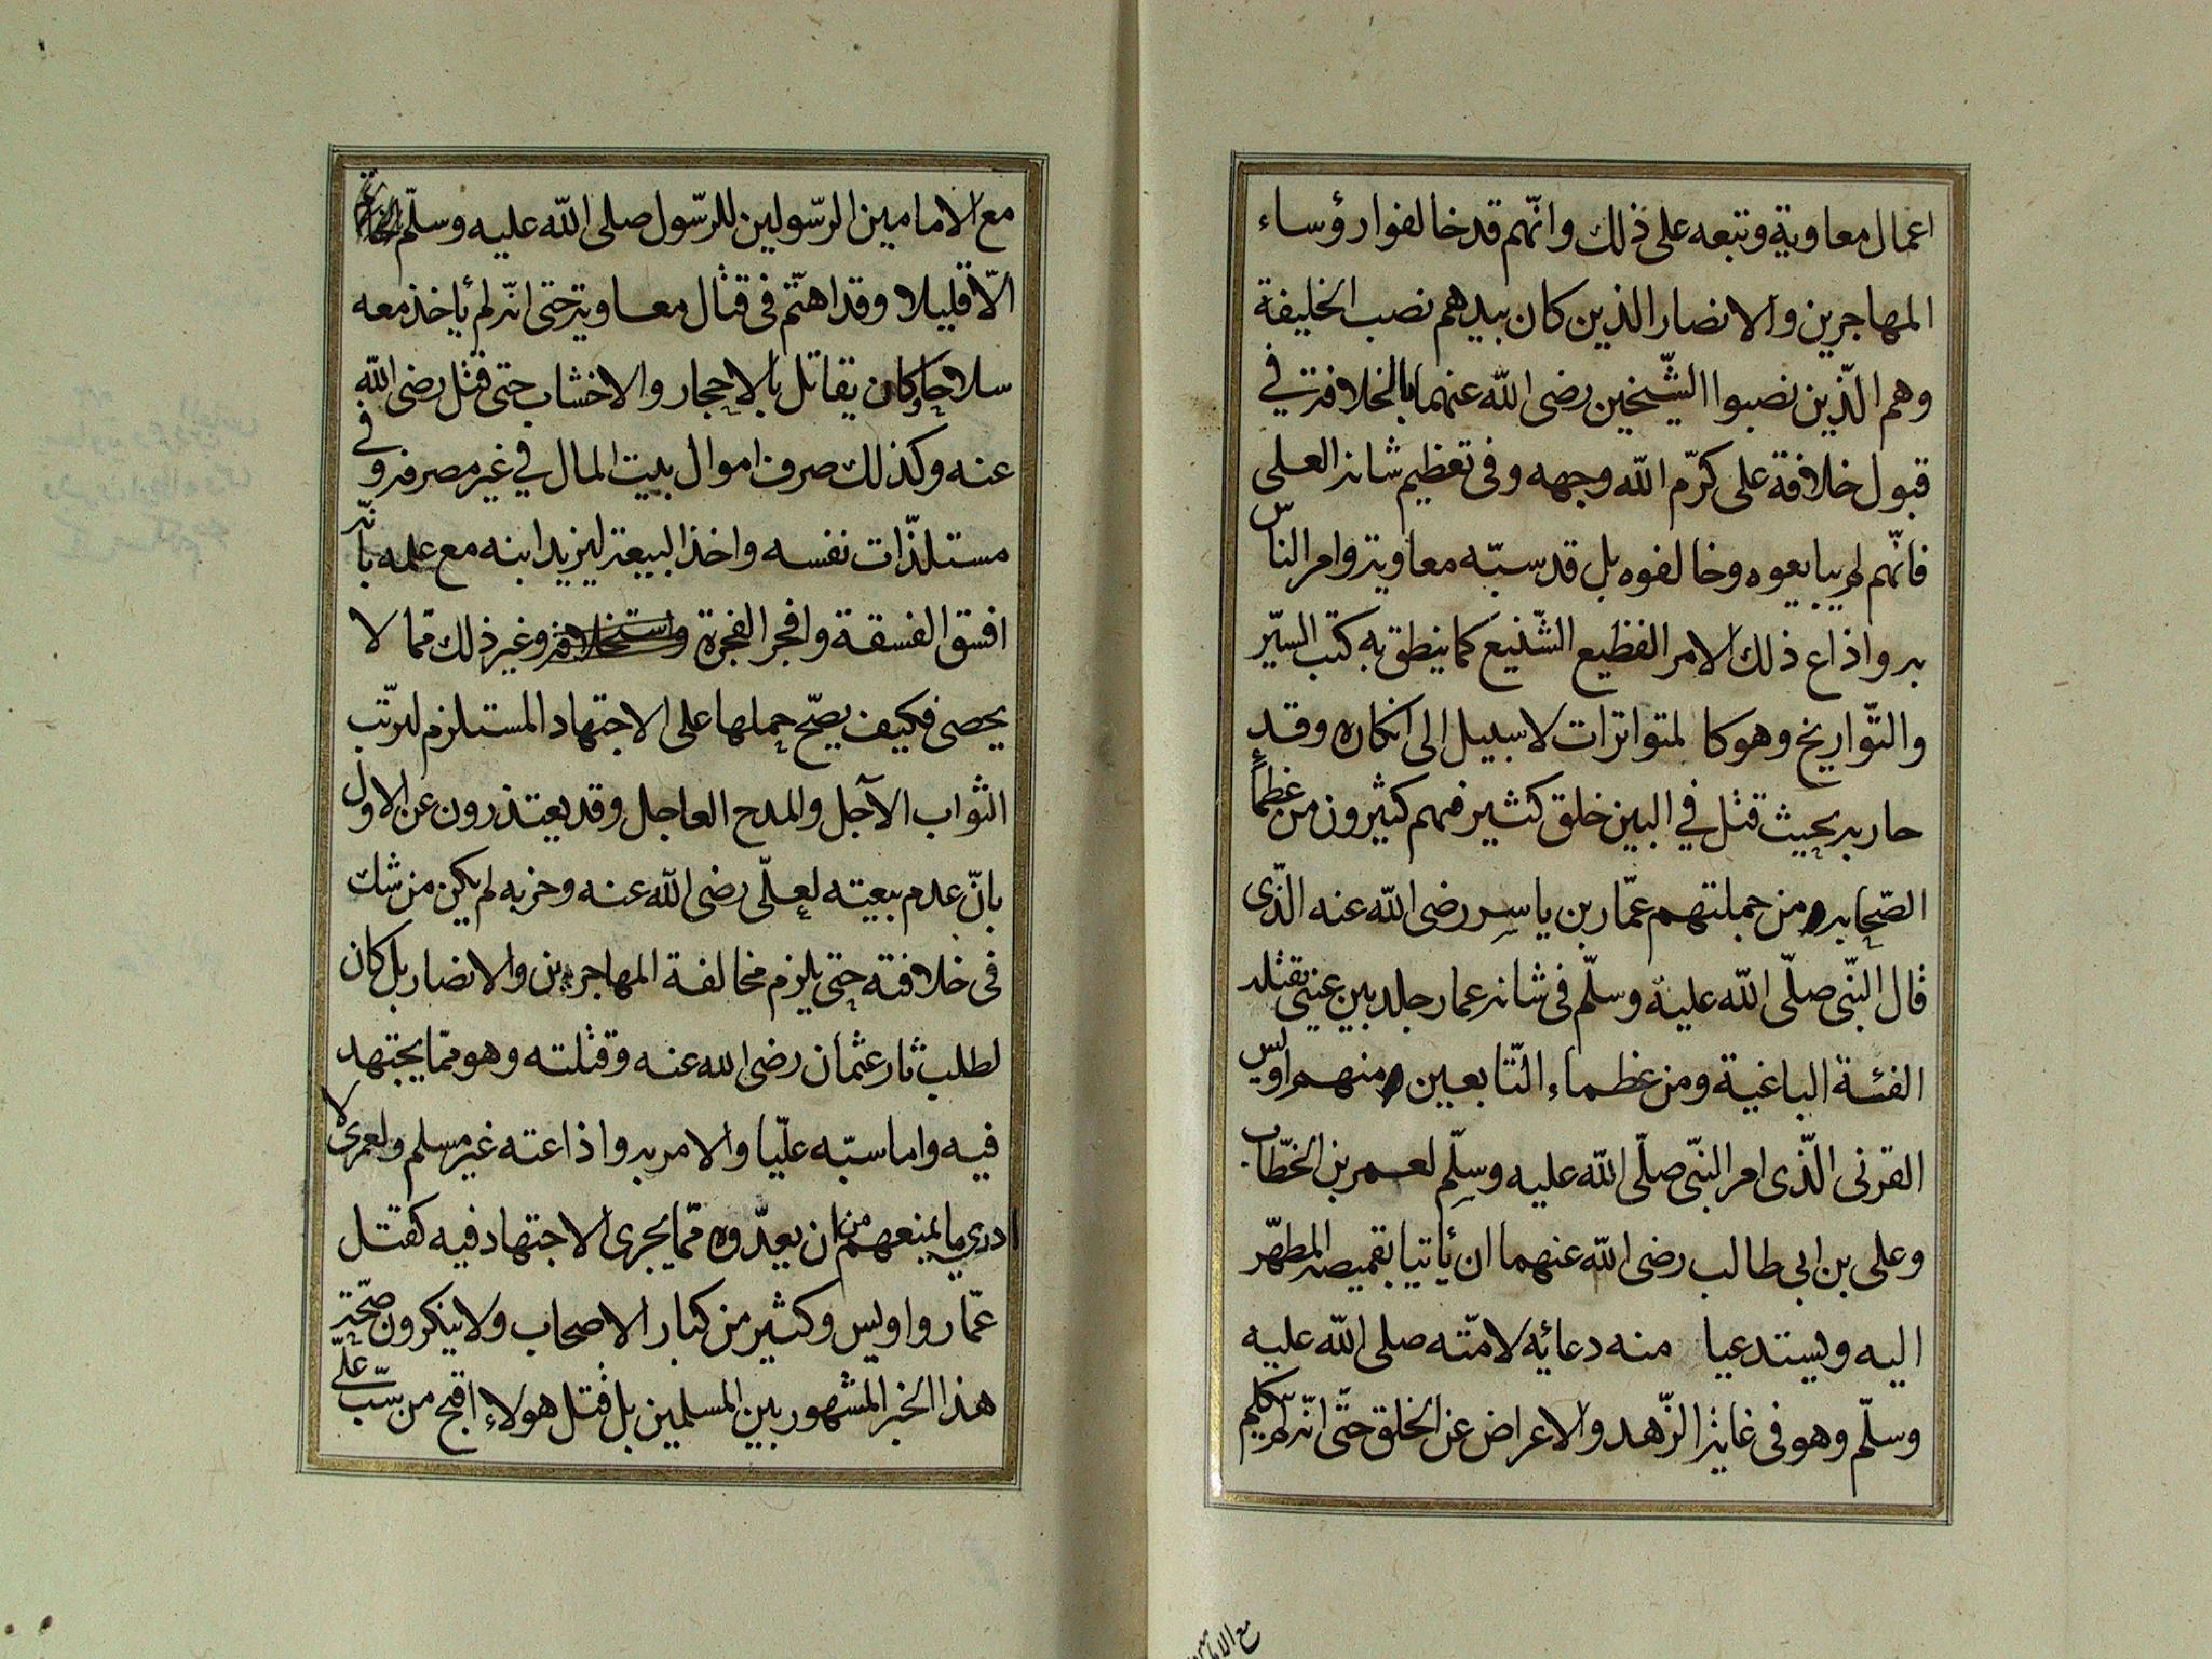 اعمال معاوية وتبعه على ذلك وانّهم قد خالفوا رؤساء
المهاجرين والانصار الذين كان بيدهم نصب الخليفة
وهم الّذين نصبوا الشّيخين رضى الله عنهما بالخلافة في
قبول خلافة على كرّم الله وجهه وفى تعظيم شانه العلى
فانّهم لم يبايعوه وخالفوه بل قد سبّه معاوية وامر الناس
به واذاع ذلك الامر الفظيع الشّنيع كما ينطق به كتب السّير
والتّواريخ وهو كالمتواترات لا سبيل الى انكاره وقد
حاربه بحيث قتل في البين خلق كثير فمهم كثيرون من عظماء
الصّحابه ومن جملتهم عمّار بن ياسر رضى الله عنه الّذى
قال النّبى صلّى الله عليه وسلّم فى شانه عمار جلد بين عينى تقتله
الفئة الباغية ومن عظماء التّابعين ومنهم اويس
القرنى الّذى امر النّبى صلّى الله عليه وسلّم لعمر بن الخطّاب
وعلى بن ابى طالب رضى الله عنهما ان يأتيا بقميصه المطهّر
اليه ويستدعيا منه دعائه لامّته صلى الله عليه
وسلّم وهو فى غاية الزّهد والاعراض عن الخلق حتّى انّه لم يتكلم
مع الاما
مع الامامين الرّسولين للرّسول صلى الله عليه وسلّم
الّا قليلا وقد اهتّم فى قتال معاوية حتى انّه لم يأخذ معه
سلاحا وكان يقاتل بالاحجار والاخشاب حتى قتل رضى الله
عنه وكذلك صرف اموال بيت المال في غير مصرفه وفى
مستلذّات نفسه واخذ البيعة ليزيد ابنه مع علمه بأنّه
افسق الفسقة وافجر الفجرة واستخلافه وغير ذلك ممّا لا
يحصى فكيف يصحّ حملها على الاجتهاد المستلزم لترتّب
الثواب الآجل والمدح العاجل وقد يعتذرون عن الاول
بانّ عدم بيعته لعلّى رضى الله عنه وحزبه لم يكن من شك
فى خلافته حتى يلزم مخالفة المهاجرين والانصار بل كان
لطلب ثار عثمان رضى الله عنه وقتلته وهو ممّا يجتهد
فيه واما سبّه عليّا والامر به واذاعته غير مسلم ولعمرى لا
ادري ما يمنعهم من ان يعدّوه ممّا يجرى الاجتهاد فيه كقتل
عمّار واويس وكثير من كبار الاصحاب ولا ينكرون صحّته
هذا الخبر المشهور بين المسلمين بل قتل هولاء اقبح من سبّ علّى